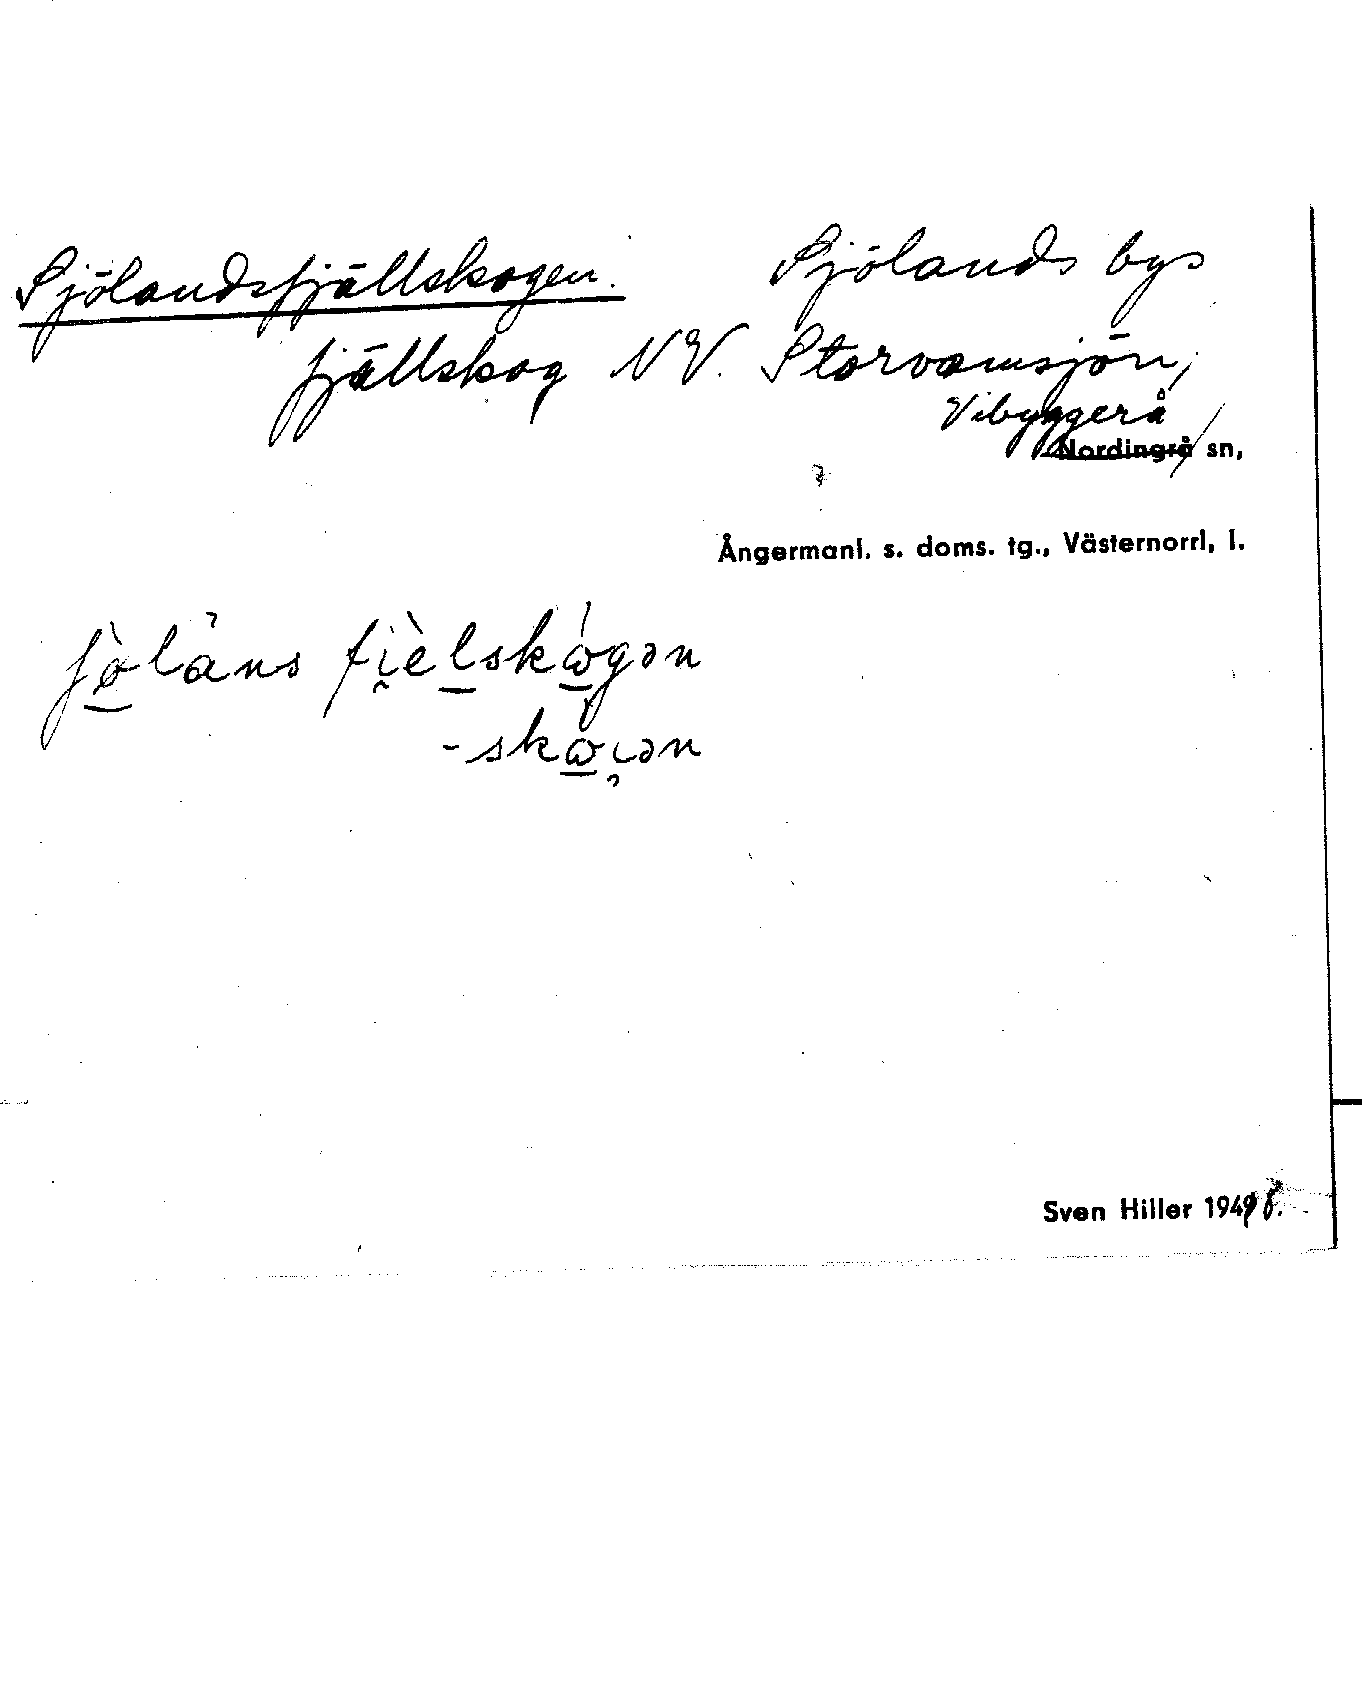 Sjölandsfjällskogen. Sjölands bys
fjällskog NV. Storvamsjön,
Vibyggerå
Nordingrå sn,
Ångermanl. s. doms. tg., Västernorrl. l.
-skω̣ɩən
Sven Hiller 1948.